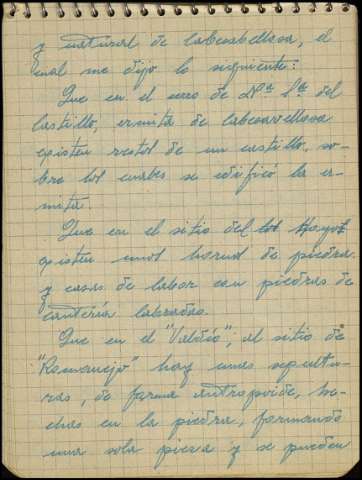 y natural de Cabezabellosa, el
cual me dijo lo siguiente:
Que en el cerro de Nª Sª del
Castillo, ermita de Cabezavellosa
existen restos de un castillo, so-
bre los cuales se edificó la er-
mita.
Que en el sitio del los Hoyos
existen unos hornos de piedra
y casas de labor con piedras de
cantería labradas.
Que en el "Valdío", al sitio de
hay unas sepultu-
ras, de forma antropoide, he-
chas en la piedra, formando
una sola pieza y se pueden